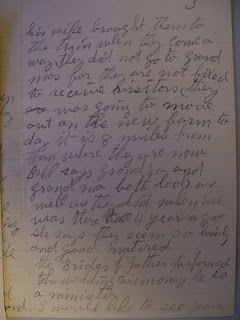 3
his wife brought them to
the train when they come a
way, they did not go to grand
mas for they are not fitted
to receive visitors, they
are was going to move
out on the new farm to
day it is 8 miles from
where they are now
Bell says grandpa and
grand ma both look as
well as they did when we
was there 4 year ago
she says they seem so lively
and good natured
the Brides Father performed
the wedding cirimoney he is
a minister
and I would like to see